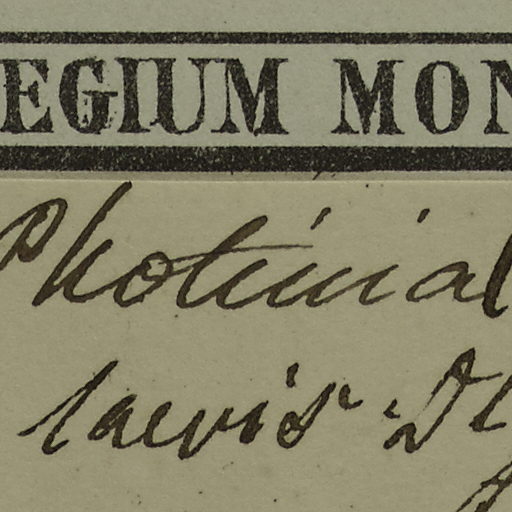 EGIUM MON
Photinia
laevis D